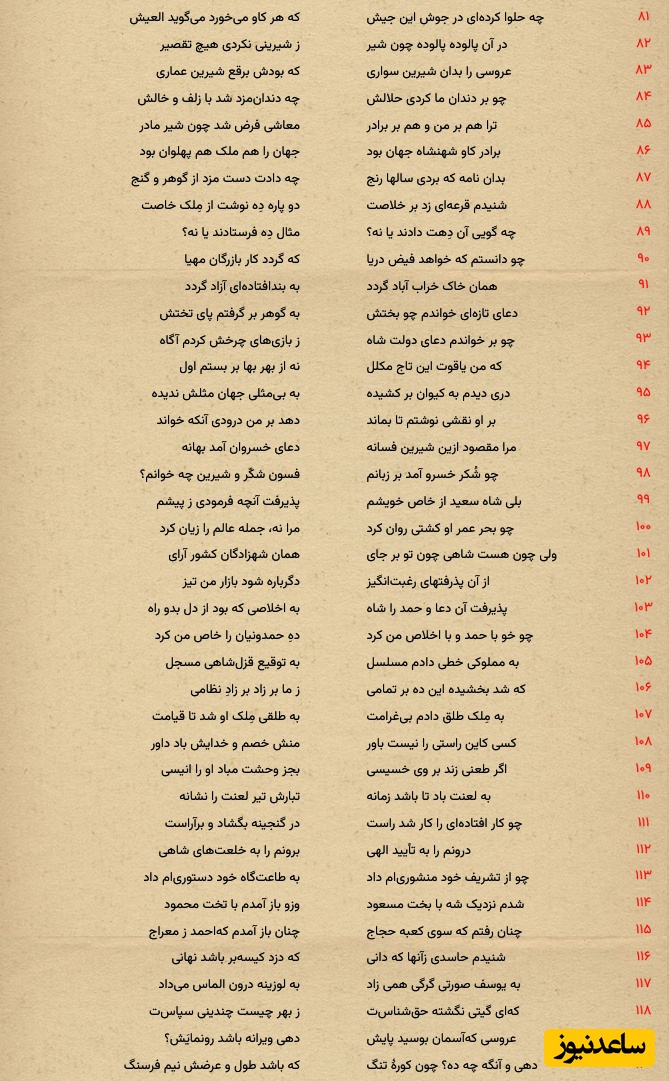 ۸۱ چه حلوا کرده‌ای در جوش این جیش که هر کاو می‌خورد می‌گوید العیش
۸۲ در آن پالوده پالوده چون شیر ز شیرینی نکردی هیچ تقصیر
۸۳ عروسی را بدان شیرین سواری که بودش برقع شیرین عماری
۸۴ چو بر دندان ما کردی حلالش چه دندان‌مزد شد با زلف و خالش
۸۵ ترا هم بر من و هم بر برادر معاشی فرض شد چون شیر مادر
۸۶ برادر کاو شهنشاه جهان بود جهان را هم ملک هم پهلوان بود
۸۷ بدان نامه که بردی سالها رنج چه دادت دست مزد از گوهر و گنج
۸۸ شنیدم قرعه‌ای زد بر خلاصت دو پاره دِه نوشت از مِلک خاصت
۸۹ چه گویی آن دِهت دادند یا نه؟ مثال دِه فرستادند یا نه؟
۹۰ چو دانستم که خواهد فیض دریا که گردد کار بازرگان مهیا
۹۱ همان خاک خراب آباد گردد به بندافتاده‌ای آزاد گردد
۹۲ دعای تازه‌ای خواندم چو بختش به گوهر بر گرفتم پای تختش
۹۳ چو بر خواندم دعای دولت شاه ز بازی‌های چرخش کردم آگاه
۹۴ که من یاقوت این تاج مکلل نه از بهر بها بر بستم اول
۹۵ دری دیدم به کیوان بر کشیده به بی‌مثلی جهان مثلش ندیده
۹۶ بر او نقشی نوشتم تا بماند دهد بر من درودی آنکه خواند
۹۷ مرا مقصود ازین شیرین فسانه دعای خسروان آمد بهانه
۹۸ چو شُکر خسرو آمد بر زبانم فسون شکّر و شیرین چه خوانم؟
۹۹ بلی شاه سعید از خاص خویشم پذیرفت آنچه فرمودی ز پیشم
۱۰۰ چو بحر عمر او کشتی روان کرد مرا نه، جمله عالم را زیان کرد
۱۰۱ ولی چون هست شاهی چون تو بر جای همان شهزادگان کشور آرای
۱۰۲ از آن پذرفتهای رغبت‌انگیز دگرباره شود بازار من تیز
۱۰۳ پذیرفت آن دعا و حمد را شاه به اخلاصی که بود از دل بدو راه
۱۰۴ چو خو با حمد و با اخلاص من کرد دهِ حمدونیان را خاص من کرد
۱۰۵ به مملوکی خطی دادم مسلسل به توقیع قزل‌شاهی مسجل
۱۰۶ که شد بخشیده این ده بر تمامی ز ما بر زاد بر زادِ نظامی
۱۰۷ به مِلک طلق دادم بی‌غرامت به طلقی مِلک او شد تا قیامت
۱۰۸ کسی کاین راستی را نیست باور منش خصم و خدایش باد داور
۱۰۹ اگر طعنی زند بر وی خسیسی بجز وحشت مباد او را انیسی
۱۱۰ به لعنت باد تا باشد زمانه تبارش تیر لعنت را نشانه
۱۱۱ چو کار افتاده‌ای را کار شد راست در گنجینه بگشاد و برآراست
۱۱۲ درونم را به تأیید الهی برونم را به خلعت‌های شاهی
۱۱۳ چو از تشریف خود منشوری‌ام داد به طاعت‌گاه خود دستوری‌ام داد
۱۱۴ شدم نزدیک شه با بخت مسعود وزو باز آمدم با تخت محمود
۱۱۵ چنان رفتم که سوی کعبه حجاج چنان باز آمدم که‌احمد ز معراج
۱۱۶ شنیدم حاسدی زآنها که دانی که دزد کیسه‌بر باشد نهانی
۱۱۷ به یوسف صورتی گرگی همی زاد به لوزینه درون الماس می‌داد
۱۱۸ که‌ای گیتی نگشته حق‌شناس‌ت ز بهر چیست چندینی سپاس‌ت
عروسی که‌آسمان بوسید پایش دهی ویرانه باشد رونمایَش؟
دهی و آنگه چه ده؟ چون کورهٔ تنگ که باشد طول و عرضش نیم فرسنگ
ساعدنیوز